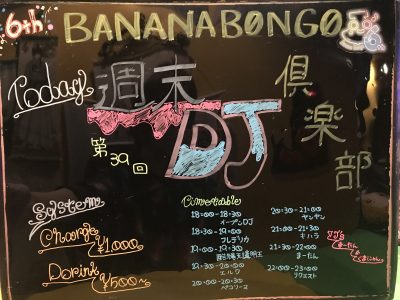 6th BANANABONGO
Today 週末
DJ
倶楽部
第39回
System
Charge
¥1000
Dorink
¥500〜
Timetable
18:00-18:30
オープンDJ
18:30-19:00
フレデリカ
19:00-19:30
19:30-20:00
エルジ
20:00-20:30
ペコリーヌ
20:30-21:00
ヤンヤン
21:00-21:30
キハラ
21:30-22:00
まーたん
22:00-22:30
リクエスト